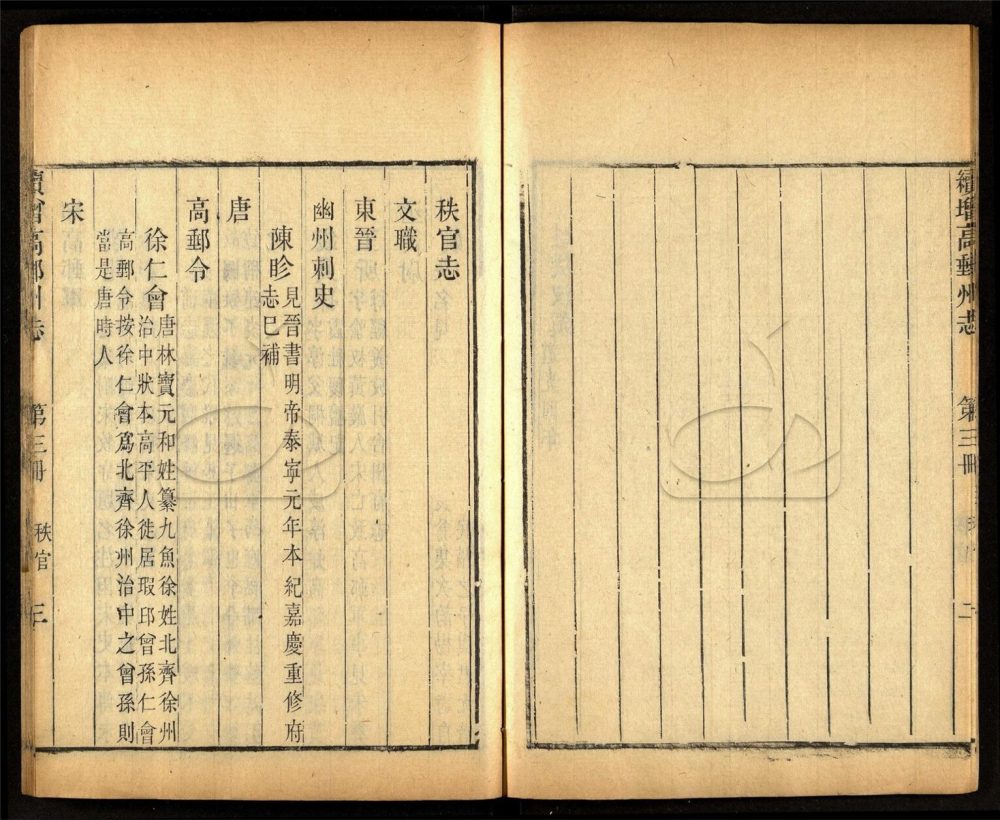 續增高郵州志
第三冊
二
秩官志
文職
東晉
幽州刺史
陳眕
見晉書明帝泰寧元年本紀嘉慶重修府
志已補
唐
高郵令
徐仁會
唐林寶元和姓纂九魚徐姓北齊徐州
治中狀本高平人徙居瑕邱曾孫仁會
高郵令按徐仁會爲北齊徐州治中之曾孫則
當是唐時人
宋
續增高郵州志
第三冊
秩官
三